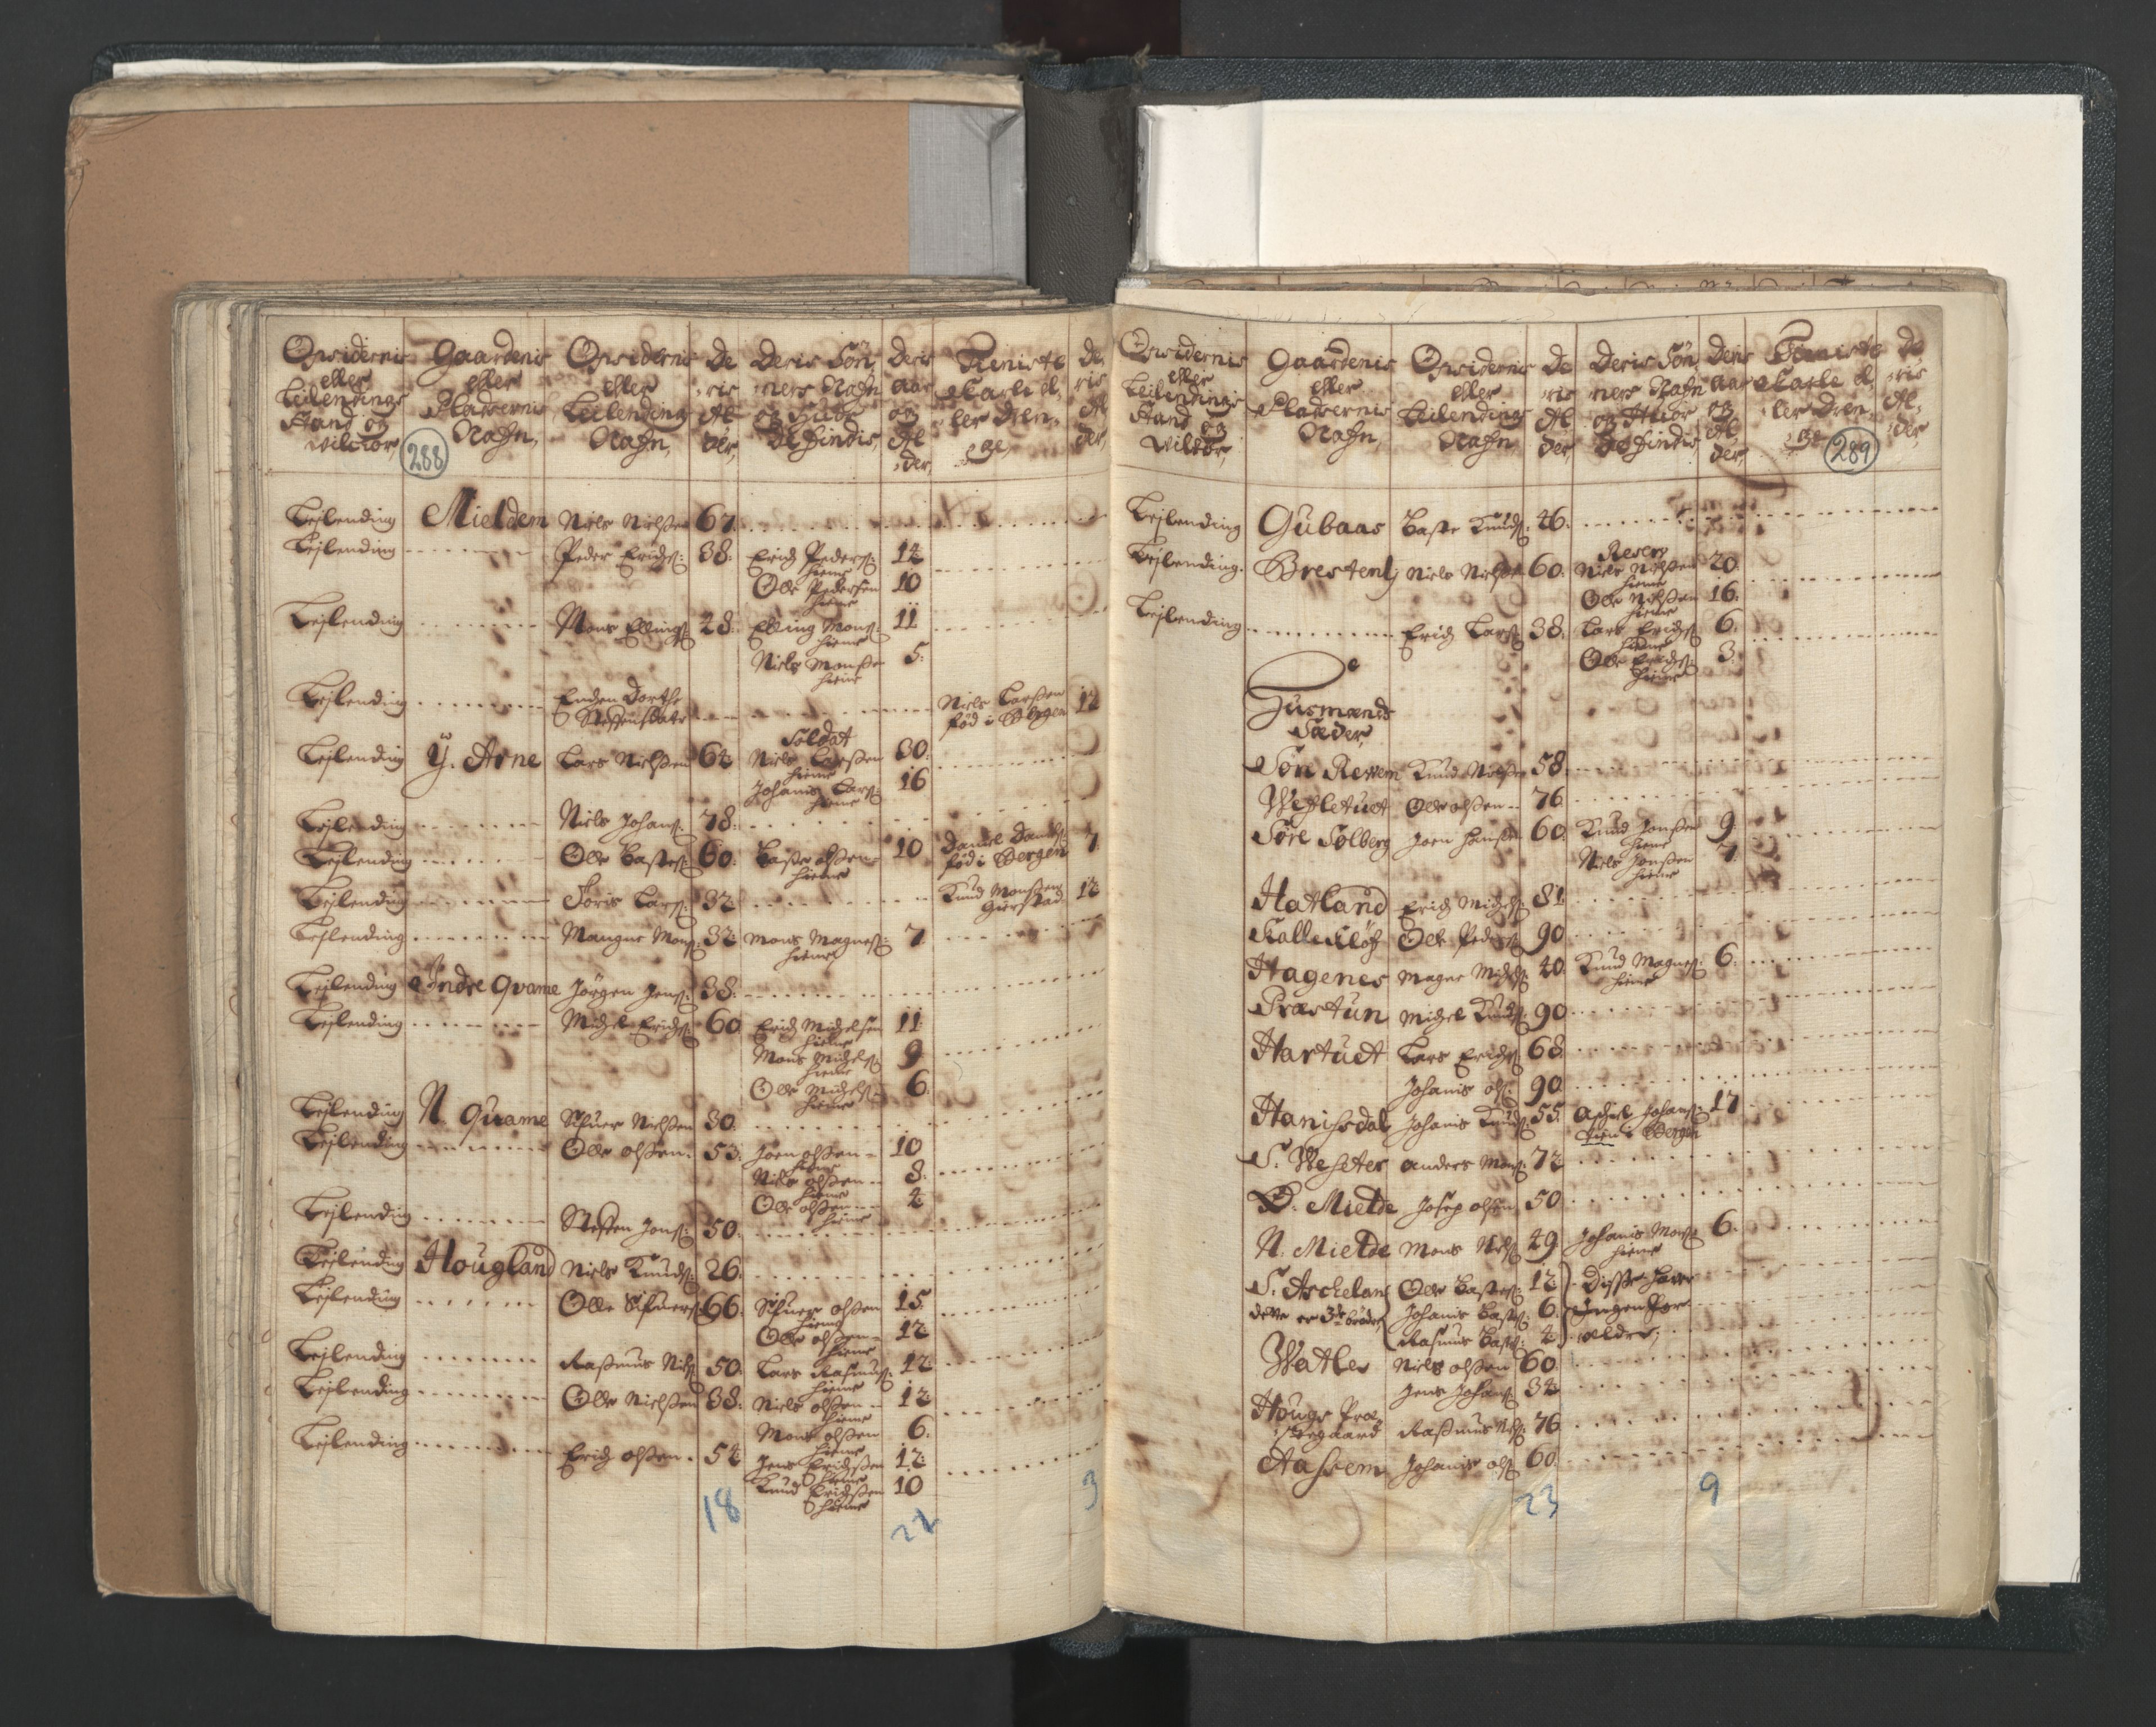 Opsidernis eller Leilendings Stand og Vilckor,
Gaardenis eller Pladsernis Nafn,
Opsidernis eller Leilending Nafn,
De ris Al der,
Deris Søn ners Nafn og Huor De Findis,
Deris aar og Al der,
Tieniste Karle el ler Dren ge,
De ris Al der,
288
Leilending Mieldem Niels Nielsen 67
Leilending Peder Erichs: 38: Erich Peders: hieme 12
Olle Pedersen hieme 10
Leilending Mons Ellings 28: Elling Mons: hieme 11
Niels Monsen hieme 5:
Leilending Enden Dorthe Steffensdatr Niels Larsen fød i Bergen 12
Leilending Y. Arne Lars Nielsen 64 Soldat Niels Larsen hieme 30:
Johanis Lars: hieme 16
Leilending Niels Johans: 78:
Leilending Olle Bastes: 60: Baste olsen hieme 10 Daniel Daniels: fød i Bergen 7
Leilending Joris Lars: 32 Knud Monsen Gierstad 12
Leilending Mangne Mons: 32 Mons Magnes: hieme 7
Leilending Indre Qvame Jørgen Jens: 38:
Leilending Michel Erichs: 60 Erich Michelsen hieme 11
Mons Michels: hieme 9
Olle Michels: hieme 6
Leilending N. Quame Sifuer Nielsen 30
Leilending Olle olsen 53: Joen olsen hieme 10
Niels olsen hieme 8:
Olle olsen hieme 4
Leilending Steffen Jons: 50:
Leilending Hougland Niels Knuds: 26:
Leilending Olle Sifuers: 66: Sifuer olsen hieme 15
Olle olsen hieme 12
Leilending Rasmus Niels: 50: Lars Rasmus: hieme 12
Leilending Olle Nielsen 38: Niels olsen hieme 12
Mons olsen hieme 6:
Leilending Erich olsen 54 Jens Erichsen hieme 12
Knud Erichsen hieme 10
18
22
3
Opsidernis eller Leilendings Stand og Vilckor,
Gaardenis eller Pladsernis Nafn,
Opsidernis eller Leilendings Nafn,
De ris Al der,
Deris Søn ners Nafn og Huor De Findis,
Deris aar og Al der,
Tieniste Karle el ler Dren ge
De ris Al der,
289
Leilending Gubaas Baste Knuds: 46:
Leilending Brestenlj Niels Nielsen 60: Reserv Niels Nielsen hieme 20
Olle Nielsen hieme 16:
Leilending Erich Lars: 38: Lars Erichs: hieme 6:
Olle Erichs: hieme 3
Husmænds Sæder,
Søre Rewem Knud Nielsen 58
Wegletuet Olle olsen 76
Søre Solberg Joen Hansen 60 Knud Jonsen hieme 9
Niels Jonsen hieme 7
Hatland Erich Michels: 81
Kallekløf Olle Peders: 90
Hagenes Magne Michels: 40 Knud Magnes: hieme 6:
Præstun Michel Knuds: 90
Hartuet Lars Erichs: 68
Johanis ols: 90
Hanisdal Johanis Knuds: 55: Achiel Johans: tiene i Bergen 17
S. Wefeter Anders Mons: 72
Ø. Mielde Josep olsen 50
N. Mielde Mons Niels: 49 Johanis Mons: hieme 6:
S. Aschelan Olle Bastes: 12 Disse haver
dette er 3de brødre Johanis Bastes: 6 Ingen For
Rasmus Bastes: 4 ældre;
Watler Niels olsen 60
Jens Johans: 34
Hougs Præstegaard Rasmus Niels: 76
Aasem Johanis ols: 60
23
9